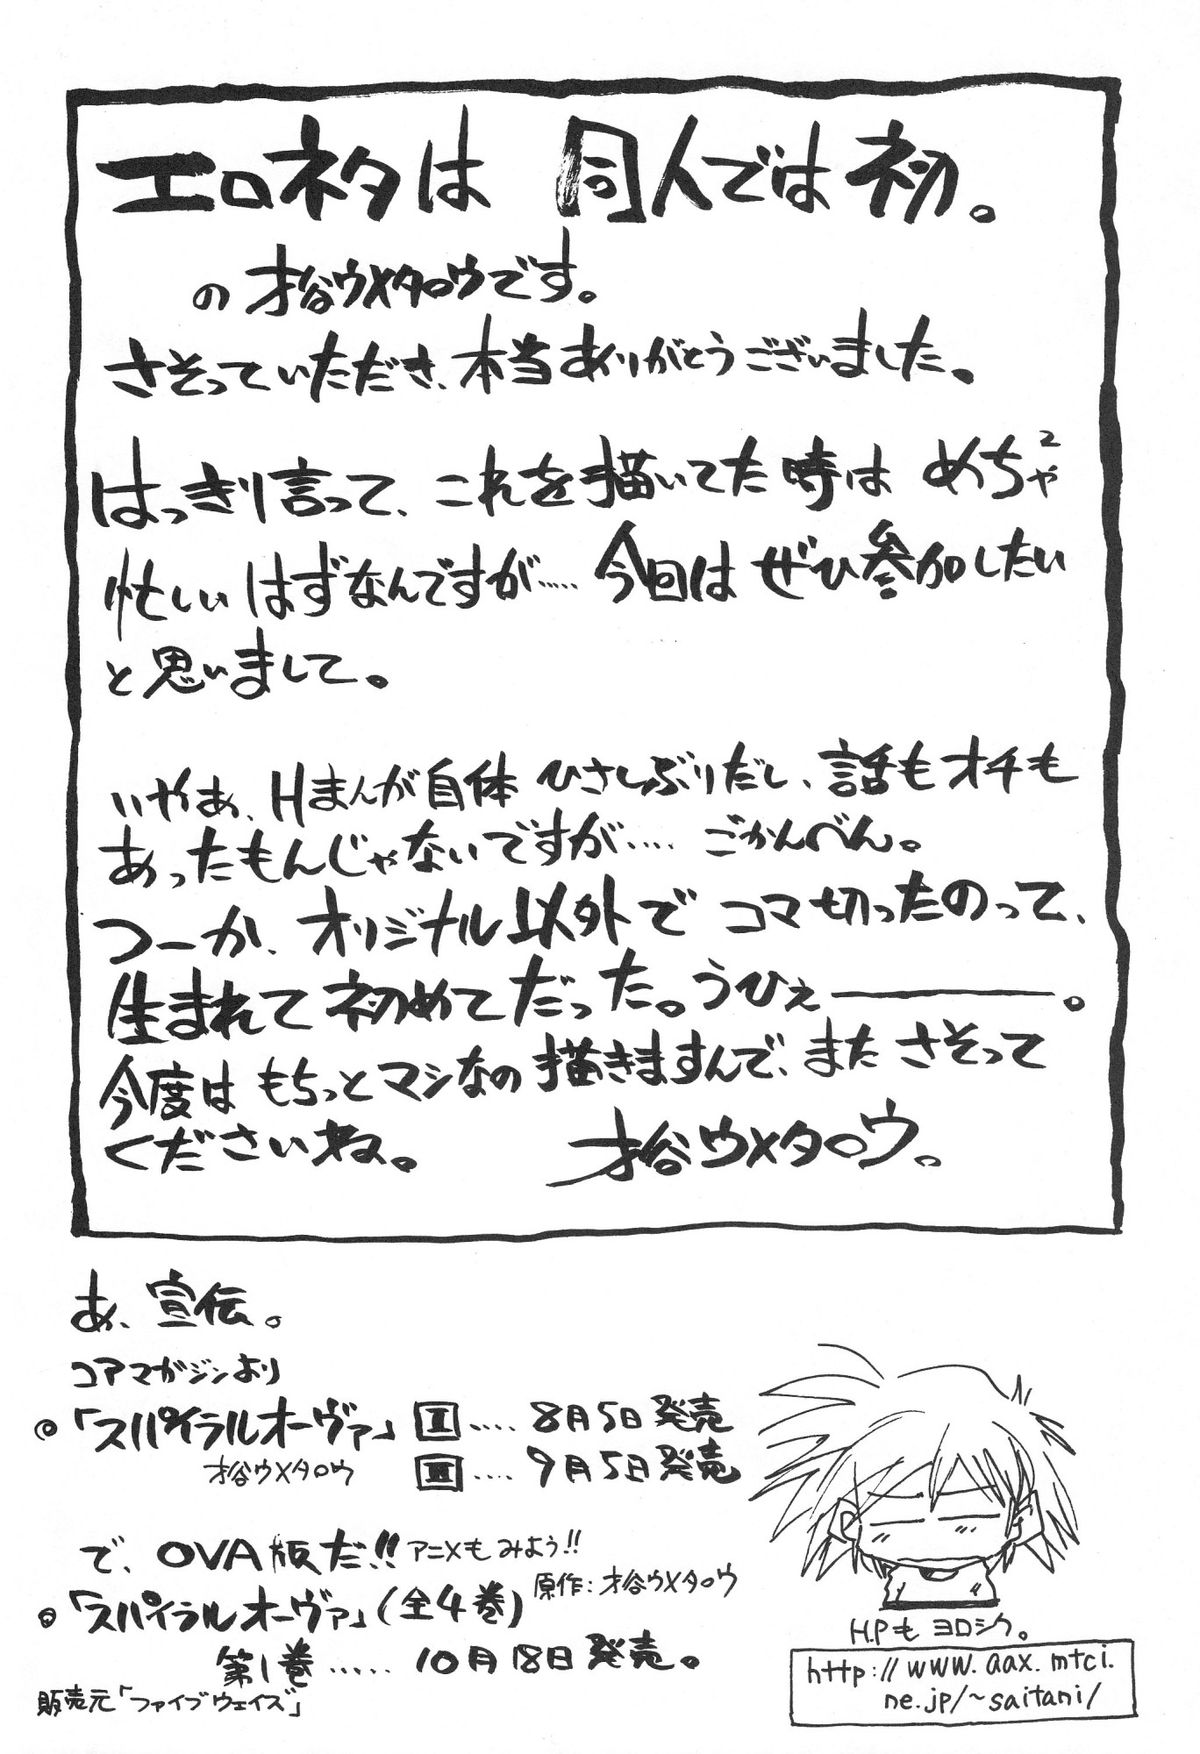 エロネタは 同人では初。
の 才谷ウメタロウです。
さそっていただき、本当ありがとうございました。
はっきり言って、これを描いてた時は めちゃ2
忙しい はずなんですが‥‥‥ 今回は ぜひ参加したい
と思いまして。
いやあ、Hまんが自体 ひさしぶりだし、話もオチも
あったもんじゃないですが‥‥ ごかんべん。
つーか、オリジナル以外で コマ切ったのって、
生まれて初めてだった。うひぇ――――。
今度は もちっとマシなの描きますんで、また さそって
くださいね。 才谷ウメタロウ。
あ、宣伝。
コアマガジンより
◎「スパイラルオーヴァ」 I ‥‥ 8月5日発売
才谷ウメタロウ II ‥‥ 9月5日発売
で、OVA版だ!! アニメも みよう!!
◎「スパイラルオーヴァ」(全4巻) 原作:才谷ウメタロウ
第1巻 ‥‥‥ 10月18日発売。
販売元「ファイブウェイズ」
H.Pも ヨロシク。
http://www.aax.mtci.
ne.jp/~saitani/